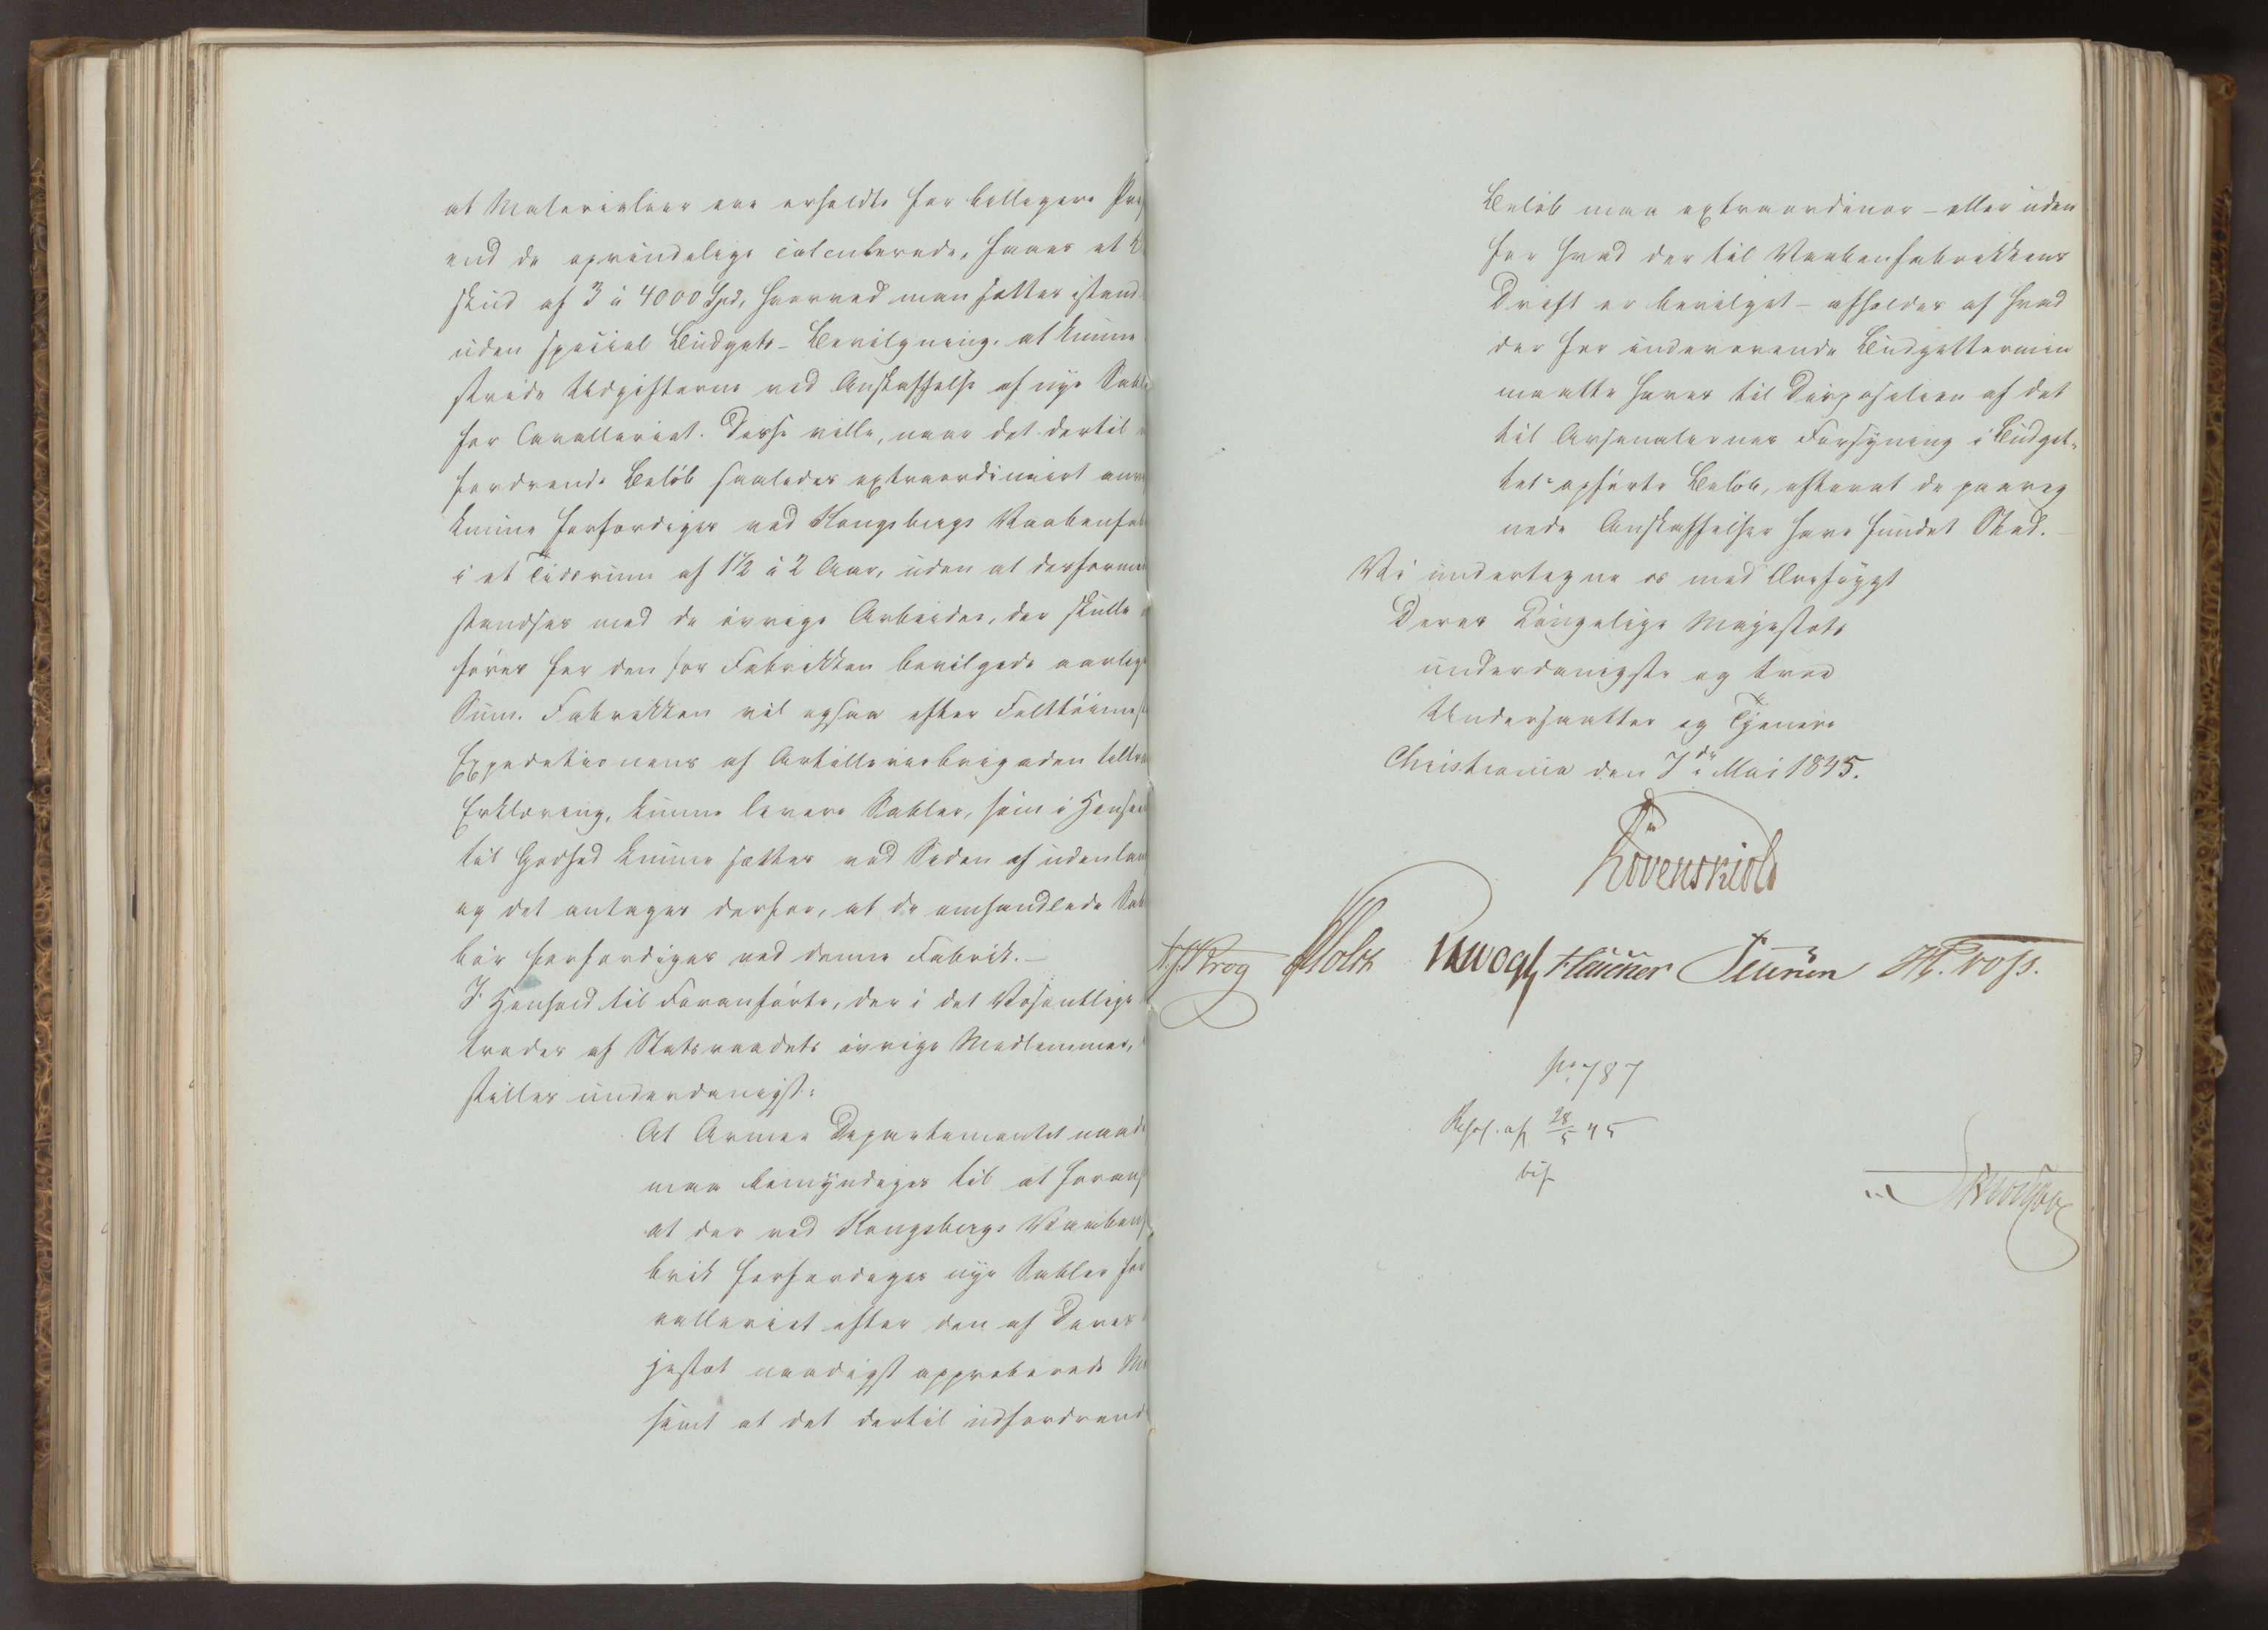 at Materialier ere erholdte for billigere Pri
end de oprindelige calculerede, haves et
skud af 3 à 4000 Spd, hvorved man sættes istand
uden special Budgets-Bevilgning at kunne
stride Udgifterne ved Anskaffelse af nye Sabl
for Cavalleriet. Disse ville, naar det dertil
fordrende Beløb saaledes extraordinairt anv
kunne forfærdiges ved Kongsbergs Vaabenfa
i et Tidsrum af 1½ à 2 Aar, uden at derforme
standses med de øvrige Arbeider, der skulle
føres for den for Fabrikken bevilgede aarlige
Sum. Fabrikken vil ogsaa efter Felttøimes
Expeditionens af Artilleriebrigaden tiltr
Erklæring, kunne levere Sabler, som i Hense
til Godhed kunne sættes ved Siden af udenlan
og det antages derfor, at de omhandlede Sab
bør forfærdiges ved denne Fabrik.-
I Henhold til Foranførte, der i det Væsentlige
trædes af Statsraadets øvrige Medlemmer,
stilles underdanigst:
At Armee Departementet naad
maa bemyndiges til at foran
at der ved Kongsbergs Vaaben
brik forfærdiges nye Sabler for
valleriet efter den af Deres
jestæt naadigst approberede M
samt at det dertil udfordrend
Beløb maa extraordinær - eller uden
for hvad der til Vaabenfabrikkens
Drift er bevilget - afholdes af hvad
der for indeværende Budgettermin
maatte haves til Disposition af det
til Arsenalernes Forsyning i Budget-
tet opførte Beløb, efterat de paareg
nede Anskaffelser have fundet Sted.-
Vi undertegne os med Ærefrygt
Deres Kongelige Majestæts
underdanigste og troe
Undersaatter og Tjenere
Christiania den 7de Mai 1845.
Løvenskiold
H. J. Krog Holst Vogt Fleischer Sibbern H. Foss.
No 787
Resol. af 28/5 45
bif